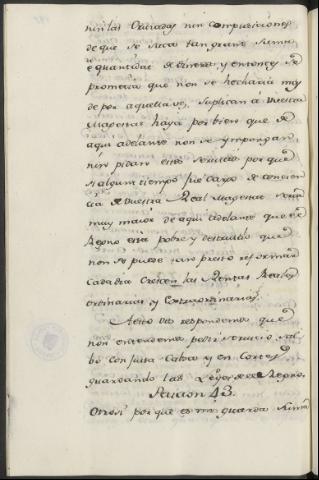 nin las Quiradas nin compusiciones
de que se saca tan grand suma
e quantidad de dineros, y entonçes se
prometia que non se hecharia mas
de por aquella vez, Suplican á Vuestra
Magestad haya por bien que de
aqui adelante non se ympongan,
nin pidan estos servicios, por que
si algun tiempo fue cargo de concien
cia de Vuestra Real Magestad será
muy maior de aqui adelante que el
Reyno está pobre y destruido que
non se puede tan presto reformar
cada dia crescen las Rentas Reales
ordinarias y Extraordinarias.
A esto vos respondemos que
non entendemos pedir servicio sal
bo con justa causa y en Cortes
guardando las Leyes del Reyno.
Peticion 43.
Otrosi por que es mi guarda